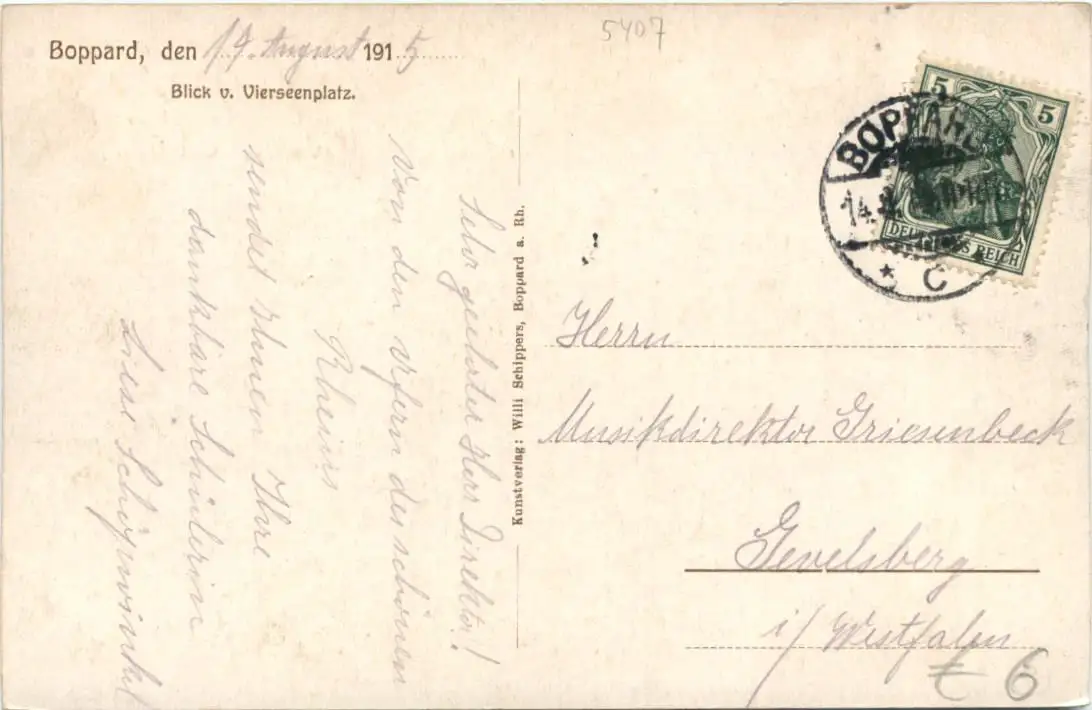 5407
Boppard, den 14. August 1915
Blick v. Vierseenplatz.
Sehr geehrter Herr Direktor!
Von den Ufern des schönen
Rheins
sendet Ihnen Ihre
dankbare Schülerin
Liese
Kunstverlag: Willi Schippers, Boppard a. Rh.
5 5
DEUTSCHES REICH
BOPPARD
14.8.
* C
Herrn
Musikdirektor Griesenbeck
Gevelsberg
i/ Westfalen
€ 6